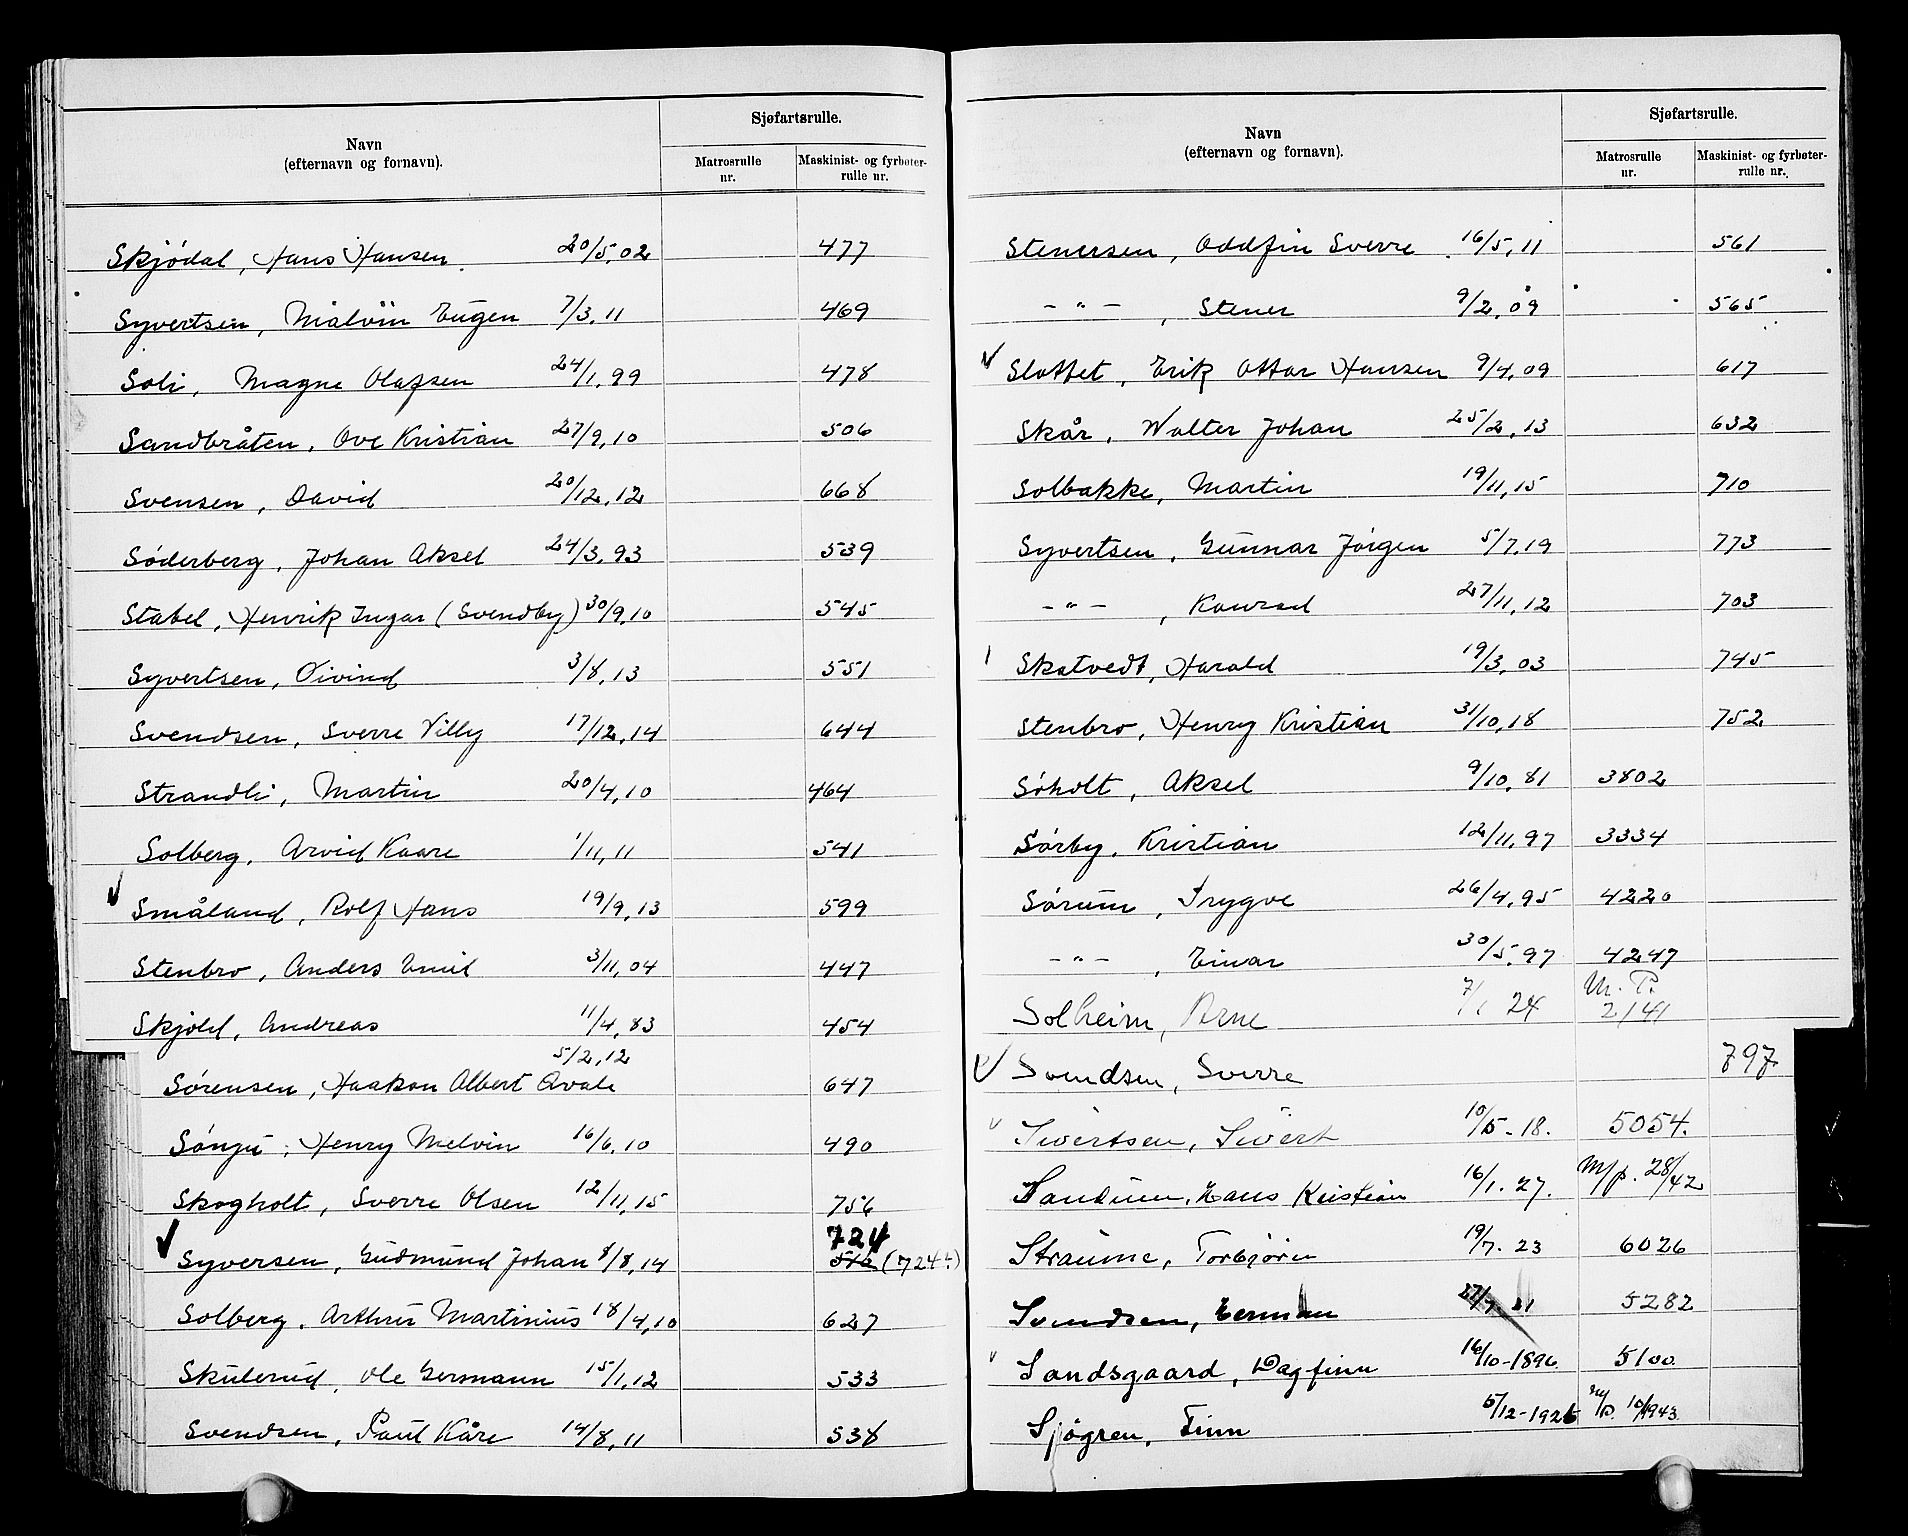 Navn
(efternavn og fornavn).
Sjøfartsrulle.
Matrosrulle nr.
Maskinist- og fyrbøter-rulle nr.
Skjödal, Hans Hansen 20/5, 02 477
Syvertsen, Malvin Eugen 7/3, 11 469
Soli, Magne Olafsen 24/1, 99 478
Sandbråten, Ove Kristian 27/9, 10 506
Svensen, David 20/12, 12 668
Söderberg, Johan Aksel 24/3, 93 539
Stabel, Henrik Ingar (Svendby) 30/9, 10 545
Syvertsen, Oivind 3/8, 13 551
Svendsen, Sverre Villy 17/12, 14 644
Strandli, Martin 20/4, 10 464
Solberg, Arvid Kaare 1/11, 11 541
✓ Småland, Rolf Hans 19/9, 13 599
Stenbro, Anders Emil 3/11, 04 447
Skjold, Andreas 11/4, 83 454
5/2, 12
Sörensen, Haakon Albert Avale 647
Söngu, Henry Melvin 16/6, 10 490
Skogholt, Sverre Olsen 12/11, 15 756
724
✓ Syversen, Gudmund Johan 8/8, 14 (724)
Solberg, Arthur Martinius 18/4, 10 627
Skulerud, Ole Germann 15/1, 12 533
Svendsen, Paul Kåre 14/8, 11 538
Navn
(efternavn og fornavn).
Sjøfartsrulle.
Matrosrulle nr.
Maskinist- og fyrbøter-rulle nr.
Stenersen, Oddfin Sverre 16/5, 11 561
– " – , Stener 9/2, 09 565
✓ Slottet, Erik Ottar Hansen 9/4, 09 617
Skår, Walter Johan 25/2, 13 632
Solbakke, Martin 19/11, 15 710
Syvertsen, Gunnar Jörgen 5/7, 19 773
– " – , Konrad 27/11, 12 703
Skatvedt, Harald 19/3, 03 745
Stenbro, Henry Kristian 31/10, 18 752
Söholt, Aksel 9/10, 81 3802
Sörby, Kristian 12/11, 97 3334
Sörum, Trygve 26/4, 95 4220
– " – , Einar 30/5, 97 4247
Solheim, Arne 7/1 24 M. P. 2/41
✓ Svendsen, Sverre 797
Sivertsen, Sivert 10/5-18. 5054.
Sandum, Hans Kristian 16/1. 27. M/p. 28/42
Straume, Torbjörn 19/7. 23 6026
Svendsen, Herman 27/7 21 5282
Sandsgaard, Dagfinn 16/10-1896 5100
Sjögren, Finn 5/12-1925 M/p. 10/1943